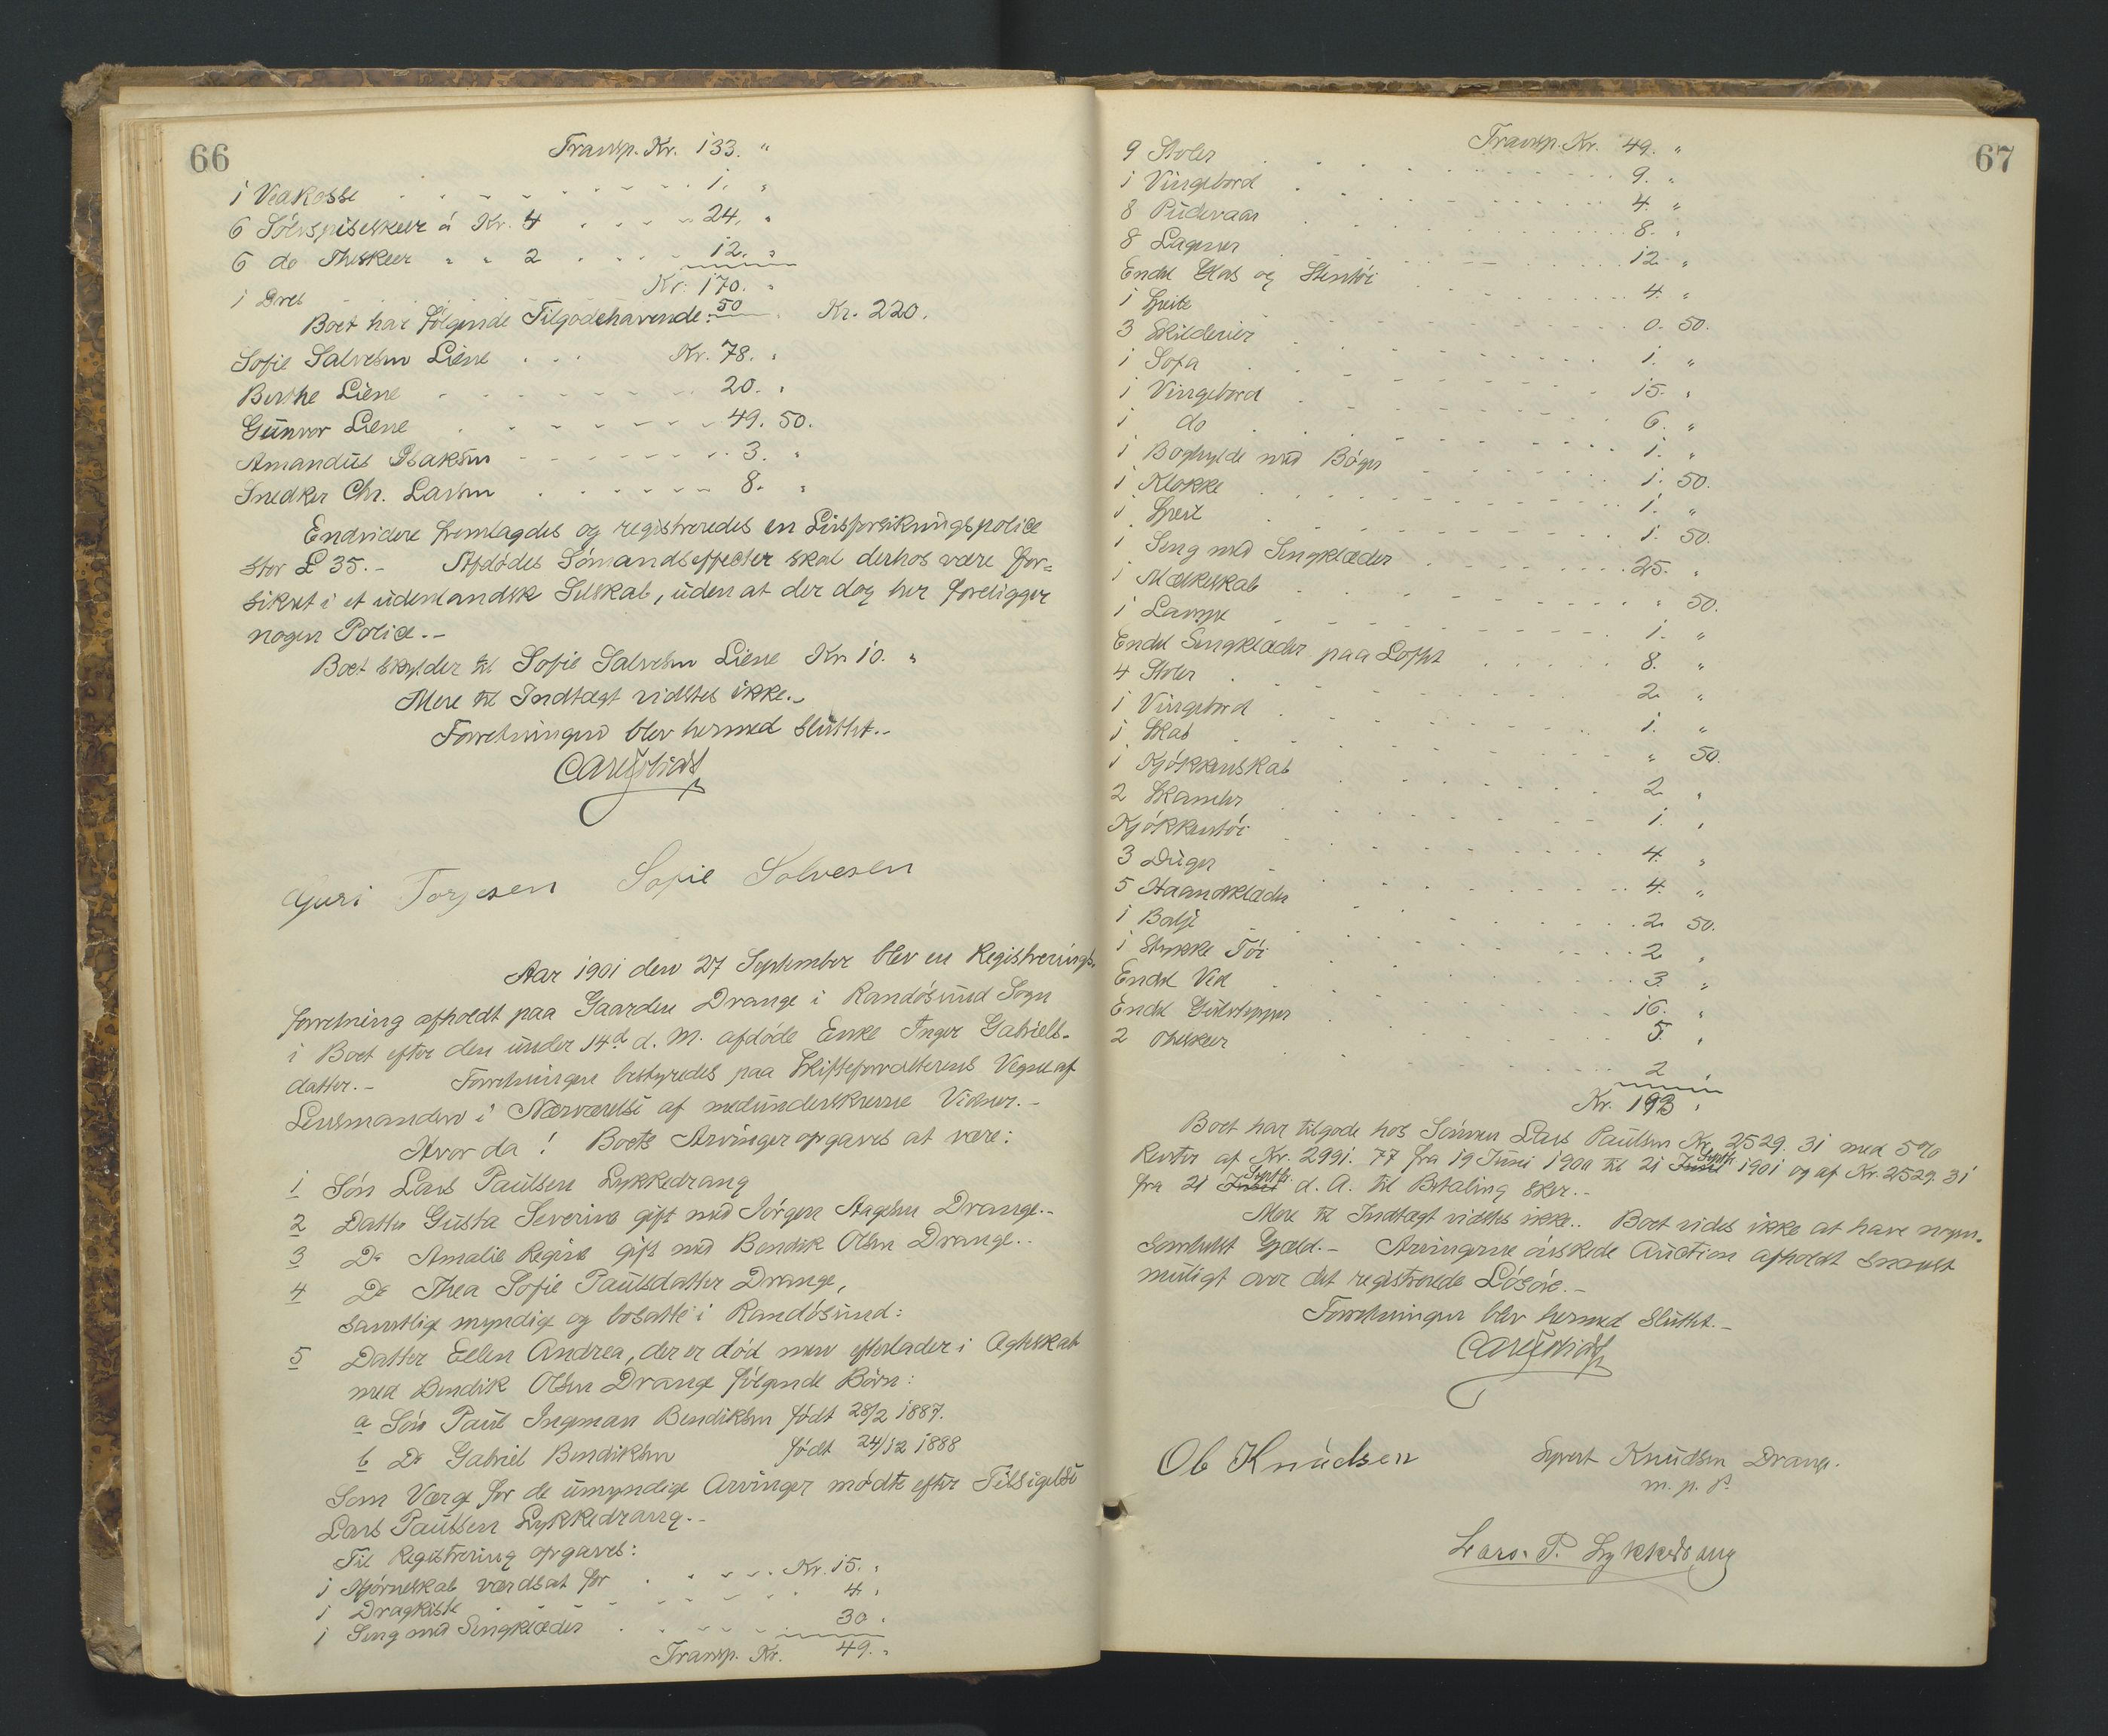 66
Transp. Kr. 133. "
1 Vedkasse . . . . 1. "
6 Sölvspiseskeer á Kr. 4 . . . . 24. "
6 do Theskeer " " 2 . . . . 12. "
Kr. 170. "
1 Drel . . . . 50 . Kr. 220.
Boet har følgende Tilgodehavende:
Sofie Salvesen Liene . . . Kr. 78. "
Berthe Liene . . . . 20. "
Gunvor Liene . . . . 49. 50.
Amandus Isaksen . . . . 3. "
Snedker Chr. Larsen . . . . 8. "
Endvidere fremlagdes og registreredes en Livsforsikringspolice
stor £ 35.- Afdødes Sömandseffecter skal derhos være for=
sikret i et udenlandsk Selskab, uden at der dog her foreligger
nogen Police.-
Boet skylder til Sofie Salvesen Liene Kr. 10. "
Mere til Indtægt vidstes ikke.-
Forretningen blev hermed sluttet.-
Guri Torjesen Sofie Solvesen
Aar 1901 den 27 September blev en Registrerings-
forretning afholdt paa Gaarden Drange i Randösund Sogn
i Boet efter den under 14d d. M. afdöde Enke Inger Gabriels-
datter.- Forretningen bestyredes paa Skifteforvalterens Vegne af
Lensmanden i Nærværelse af medunderskrevne Vidner.-
Hvor da! Boets Arvinger opgaves at være:
1 Sön Lars Paulsen Lykkedrang
2 Datter Gusta Severine gift med Jörgen Aagesen Drange.-
3 Do Amalie Regine gift med Bendik Olsen Drange.-
4 Do Thea Sofie Paulsdatter Drange,
samtlige myndige og bosatte i Randösund:
5 Datter Ellen Andrea, der er död men efterlader i Ægteskab
med Bendik Olsen Drange fölgende Börn:
a Sön Paul Ingeman Bendiksen födt 28/2 1887.
b Do Gabriel Bendiksen födt 24/12 1888
Som Værge for de umyndige Arvinger mödte efter Tilsigelse
Lars Paulsen Lykkedrang.-
Til Registrering opgaves:
1 Hjörneskab værdsat for . . . . Kr. 15. "
1 Dragkiste . . . . 4. "
1 Seng med Sengklæder . . . . 30 "
Transp. Kr. 49. "
67
Transp. Kr. 49. "
9 Stoler . . . . 9. "
1 Vingebord . . . . 4. "
8 Pudevaar . . . . 8. "
8 Lagener . . . . 12. "
Endel Glas og Stentöi . . . . 4. "
1 Speile . . . . 0. 50.
3 Skilderier . . . . 1. "
1 Sofa . . . . 15. "
1 Vingebord . . . . 6. "
1 do . . . . 1. "
1 Boghylde med Böger . . . . 1. 50.
1 Klokke . . . . 1. "
1 Speil . . . . 1. 50.
1 Seng med Sengklæder . . . . 25. "
1 Melkeskab . . . . " 50.
1 Lampe . . . . 1. "
Endel Sengklæder paa Loftet . . . . 8. "
4 Stoler . . . . 2. "
1 Vingebord . . . . 1. "
1 Skab . . . . " 50.
1 Kjökkenskab . . . . 2. "
2 Skamler . . . . 1. "
Kjökkentöi . . . . 4. "
3 Duger . . . . 4. "
5 Haandklæder . . . . 2. 50.
1 Balje . . . . 2. "
1 Stykke Töi . . . . 3. "
Endel Ved . . . . 16. "
Endel Gulvtepper . . . . 5. "
2 Theskeer . . . . 2. "
Kr. 193 "
Boet har tilgode hos Sönnen Lars Paulsen Kr. 2529. 31 med 5%
Renter af Kr. 2991. 77 fra 19 Juni 1900 til 21 Juni Septbr. 1901 og af Kr. 2529. 31
fra 21 Juni Septbr. d. A. til Betaling sker.-
Mere til Indtægt vidstes ikke.. Boet vides ikke at have nogen-
somhelst Gjæld.- Arvingerne önskede Auction afholdt snarest
muligt over det registrerede Lösöre.-
Forretningen blev hermed sluttet.-
Ob Knudsen
Syvert Knudsen Drange.
m. p. P.
Lars. P. Lykkedrang